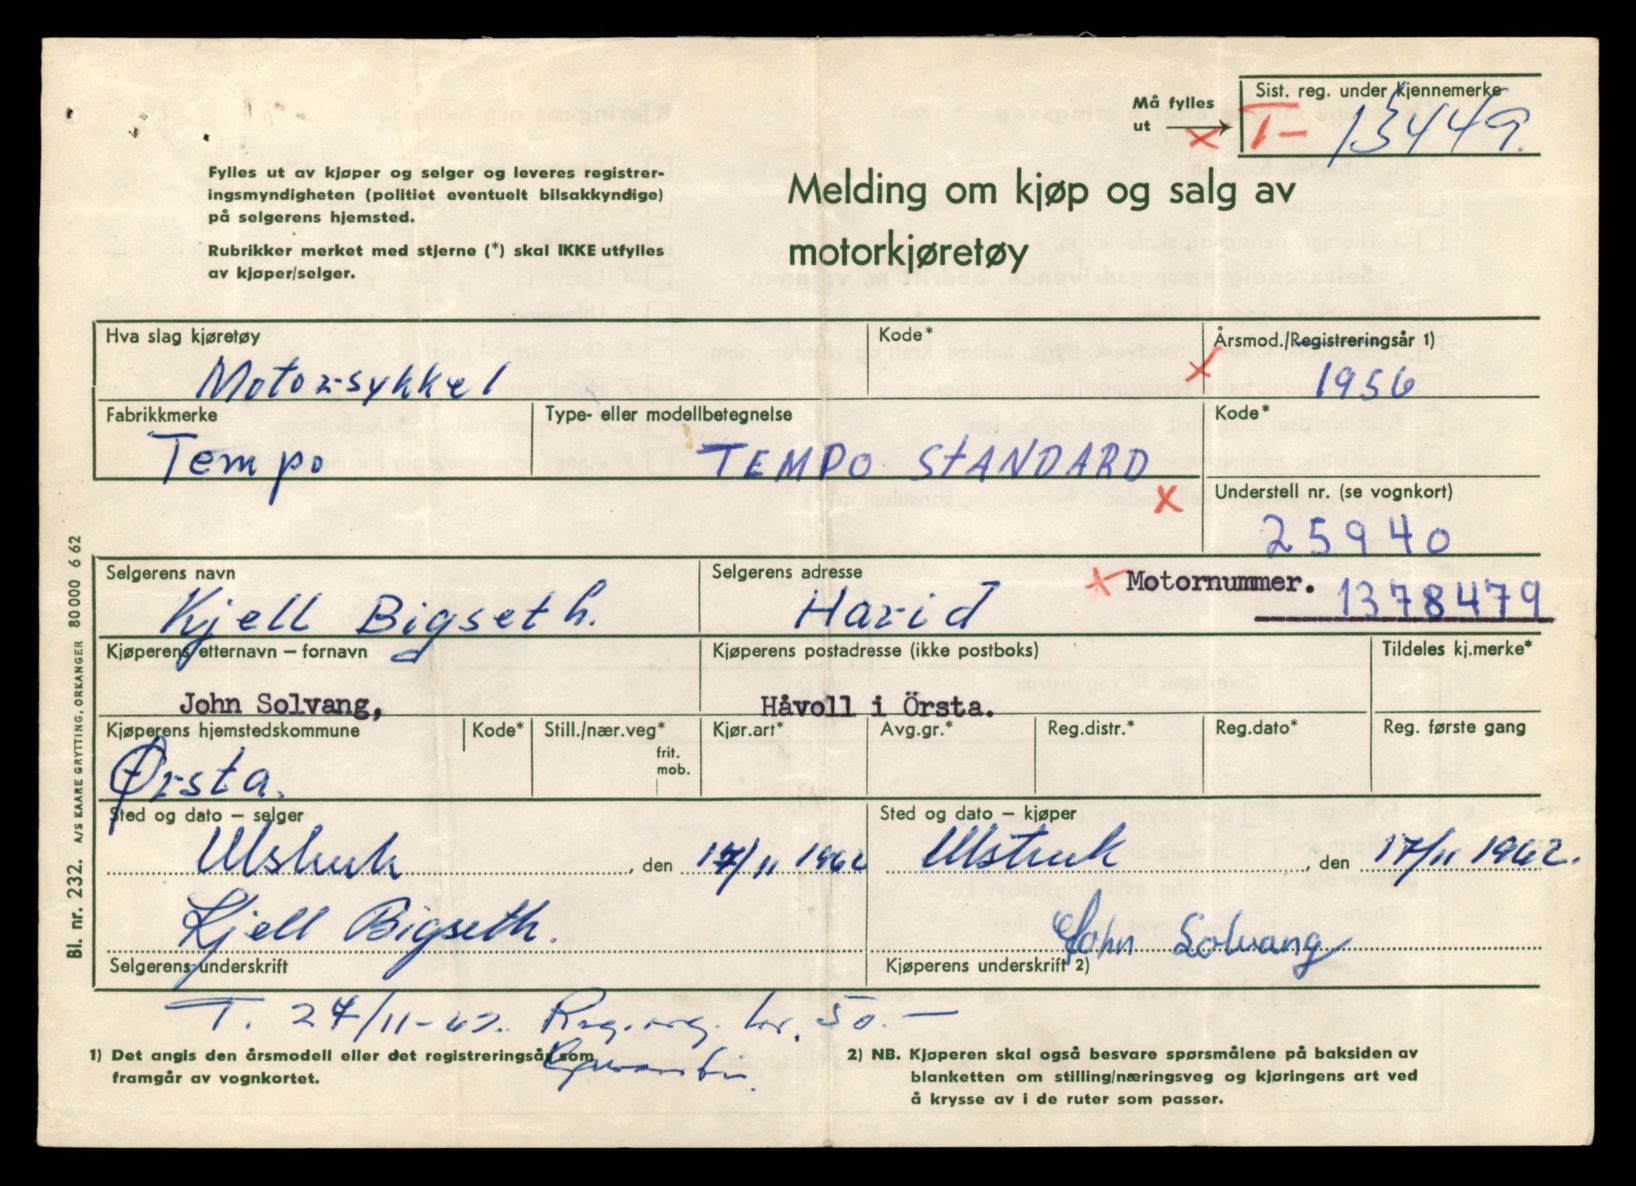 Må fylles
ut
Sist. reg. under kjennemerke
T- 13449.
Fylles ut av kjøper og selger og leveres registrer-
ingsmyndigheten (politiet eventuelt bilsakkyndige)
på selgerens hjemsted.
Rubrikker merket med stjerne (*) skal IKKE utfylles
av kjøper/selger.
Melding om kjøp og salg av
motorkjøretøy
Hva slag kjøretøy
Motorsykkel
Kode*
Årsmod./Registreringsår 1)
x 1956
Fabrikkmerke
Tempo
Type- eller modellbetegnelse
TEMPO STANDARD
Kode*
x Understell nr. (se vognkort)
25940
Selgerens navn
Kjell Bigseth.
Selgerens adresse
Harid
x Motornummer. 1378479
Kjøperens etternavn – fornavn
John Solvang,
Kjøperens postadresse (ikke postboks)
Håvoll i Örsta.
Tildeles kj.merke*
Kjøperens hjemstedskommune
Ørsta.
Kode*
Still./nær.veg*
frit.
mob.
Kjør.art*
Avg.gr.*
Reg.distr.*
Reg.dato*
Reg. første gang
Sted og dato – selger
Ulstruk, den 17/11 1962
Kjell Bigseth.
Selgerens underskrift
Sted og dato – kjøper
Ulstruk, den 17/11 1962.
John Solvang
Kjøperens underskrift 2)
T. 27/11-62. kr. 50.-
1) Det angis den årsmodell eller det registreringsår som
framgår av vognkortet.
2) NB. Kjøperen skal også besvare spørsmålene på baksiden av
blanketten om stilling/næringsveg og kjøringens art ved
å krysse av i de ruter som passer.
Bl. nr. 232. A/S KAARE GRYTTING, ORKANGER 80000 6 62